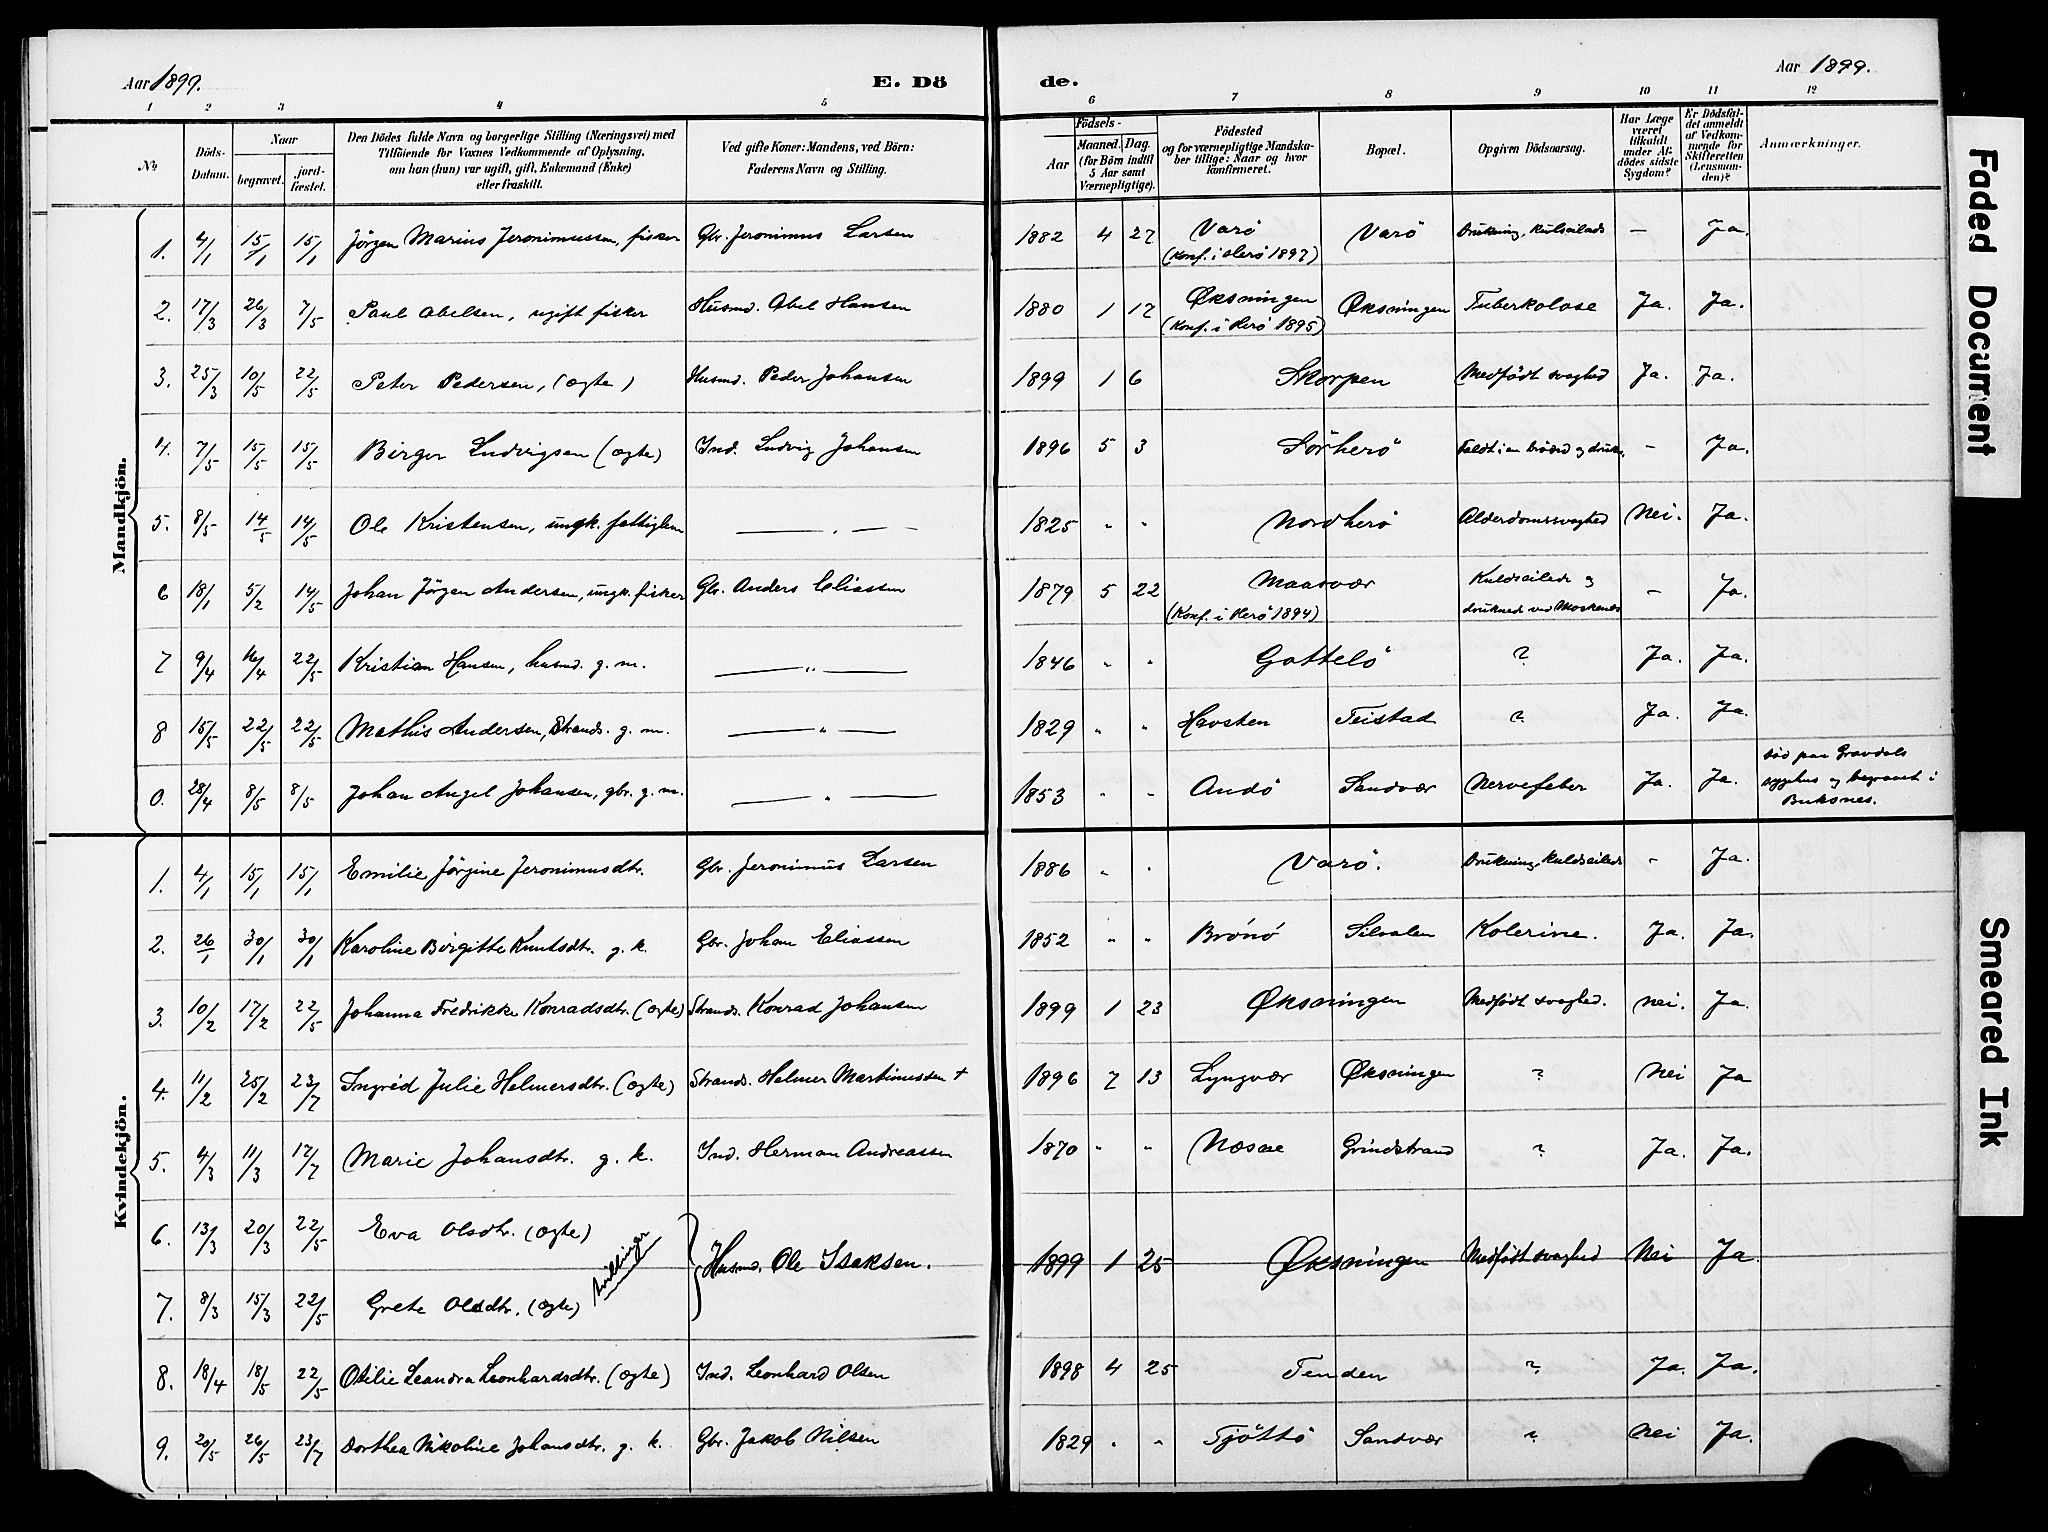 Aar 1899.
E. Dö
de.
Aar 1899.
1 2 3 4 5 6 7 8 9 10 11 12
No
Döds-Datum.
Naar
begravet.
jord-fæstet.
Den Dödes fulde Navn og borgerlige Stilling (Næringsvei) med
Tilföiende for Voxnes Vedkommende af Oplysning,
om han (hun) var ugift, gift, Enkemand (Enke)
eller fraskilt.
Ved gifte Koner: Mandens, ved Börn:
Faderens Navn og Stilling.
Födsels-
Aar
Maaned. Dag.
(for Børn indtil
5 Aar samt
Værnepligtige).
Födested
og for værnepligtige Mandska-
ber tillige: Naar og hvor
konfirmeret.
Bopæl.
Opgiven Dödsaarsag.
Har Læge
været
tilkaldt
under Af-
dödes sidste
Sygdom?
Er Dödsfal-
det anmeldt
af Vedkom-
mende for
Skifteretten
(Lensman-
den)?
Anmærkninger.
Mandkjön.
1. 4/1 15/1 15/1 Jörgen Marius Jeronimussen, fisker Gbr. Jeronimus Larsen 1882 4 27 Varö Varö Drukning, kulseilads — Ja.
(Konf. i Herö 1897)
2. 17/3 26/3 7/5 Paul Abelsen, ugift fisker Husmd. Abel Hansen 1880 1 17 Øksningen Øksningen Tuberkolose Ja. Ja.
(Konf. i Herö 1895)
3. 25/3 10/5 22/5 Peter Pedersen, (ægte) Husmd. Peder Johansen 1899 1 6 Skorpen Medfødt svaghed Ja. Ja.
4. 7/5 15/5 15/5 Birger Ludvigsen (ægte) Ind. Ludvig Johansen 1896 5 3 Sörherö Faldt i en brönd og drukn. — Ja.
5. 8/5 14/5 14/5 Ole Kristensen, ungk. fattiglem — „ — 1825 „ „ Nordherö Alderdomssvaghed Nei. Ja.
6 18/1 5/2 14/5 Johan Jörgen Andersen, ungk. fisker Gbr. Anders Eliassen 1879 5 22 Maasvær Kuldseilads og — Ja.
(Konf. i Herö 1894) druknede ved Moskenes
7 9/4 16/4 22/5 Kristian Hansen, husmd. g. m. — „ — 1846 „ „ Gottelö ? Ja. Ja.
8 15/5 22/5 22/5 Mathis Andersen, Strands. g. m. — „ — 1829 „ „ Havsten Teistad ? Ja. Ja.
0. 28/4 8/5 8/5 Johan Angel Johansen, gbr. g. m. — „ — 1853 „ „ Andö Sandvær Nervefeber Ja. Ja.
död paa Gravdals
sygehus og begravet i
Buksnes.
Kvindekjön.
1. 4/1 15/1 15/1 Emilie Jörgine Jeronimusdtr. Gbr. Jeronimus Larsen 1886 „ „ Varö. Drukning, kuldseilads — Ja.
2. 26/1 30/1 30/1 Karoline Birgitte Knutsdtr. g. k. Gbr. Johan Eliassen 1852 „ „ Brönö Silvalen Kolerine. Ja. Ja.
3. 10/2 17/2 22/5 Johanna Fredrikke Konradsdtr. (ægte) Strands. Konrad Johansen 1899 1 23 Øksningen Medfødt svaghed. nei. Ja.
4. 11/2 25/2 23/7 Ingrid Julie Helmersdtr. (ægte) Strands. Helmer Martinussen + 1896 7 13 Lyngvær Øksningen ? Nei Ja
5. 4/3 11/3 17/7 Marie Johansdtr. g. k. Ind. Herman Andreassen 1870 „ „ Næsne Grindstrand ? Ja. Ja.
6. 13/3 20/3 22/5 Eva Olsdtr. (ægte)
tvillinger Husmd. Ole Isaksen. 1899 1 25 Øksningen Medfødt svaghed Nei Ja.
7. 8/3 15/3 22/5 Grete Olsdtr. (ægte)
8. 18/4 18/5 22/5 Otilie Leandra Leonhardsdtr. (ægte) Ind. Leonhard Olsen 1898 4 25 Tenden ? Ja. Ja.
9. 20/5 26/5 23/7 Dorthea Nikoline Johansdtr. g. k. Gbr. Jakob Nilsen 1829 „ „ Tjöttö Sandvær ? Nei Ja.
Faded Document
Smeared Ink